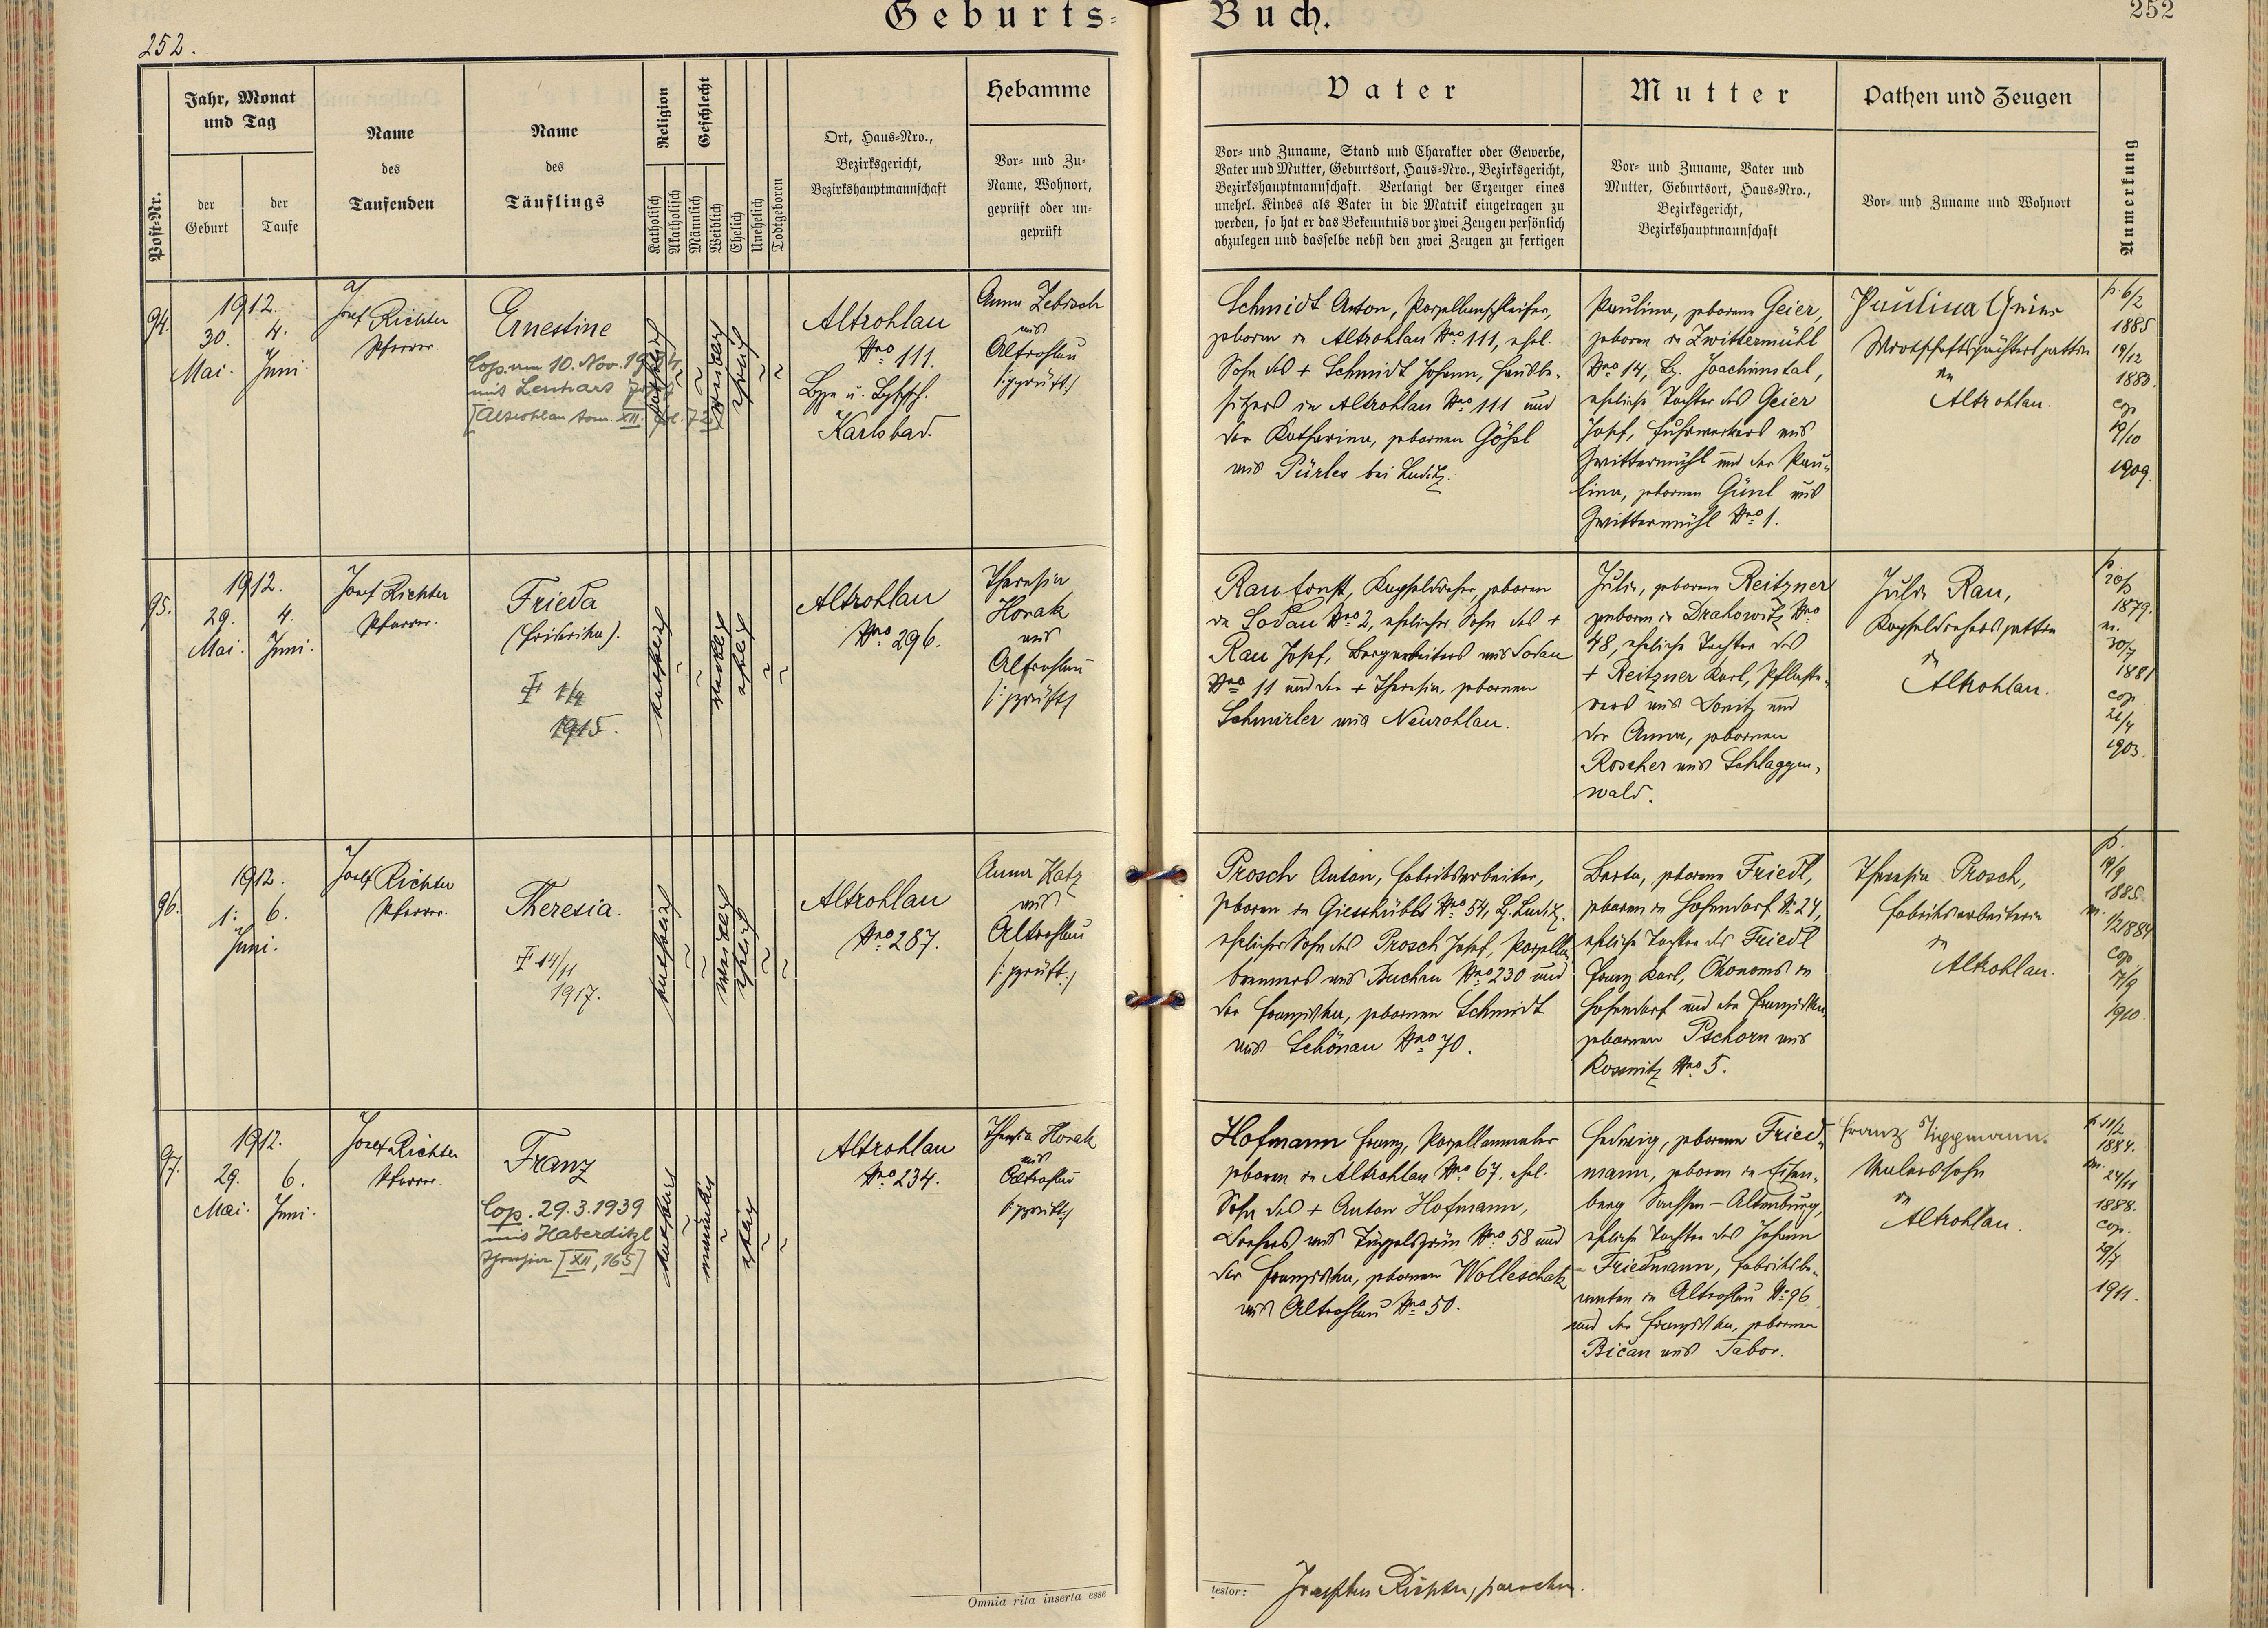 Geburts-Buch.
252.
252
Post-Nr.
Jahr, Monat
und Tag
der
Geburt
der
Taufe
Name
des
Taufenden
Name
des
Täuflings
Religion
Katholisch
Akatholisch
Geschlecht
Männlich
Weiblich
Ehelich
Unehelich
Todtgeboren
Ort, Haus-Nro.,
Bezirksgericht,
Bezirkshauptmannschaft
Hebamme
Vor- und Zu-
Name, Wohnort,
geprüft oder un-
geprüft
Vater
Vor- und Zuname, Stand und Charakter oder Gewerbe,
Vater und Mutter, Geburtsort, Haus-Nro., Bezirksgericht,
Bezirkshauptmannschaft. Verlangt der Erzeuger eines
unehel. Kindes als Vater in die Matrik eingetragen zu
werden, so hat er das Bekenntnis vor zwei Zeugen persönlich
abzulegen und dasselbe nebst den zwei Zeugen zu fertigen
Mutter
Vor- und Zuname, Vater und
Mutter, Geburtsort, Haus-Nro.,
Bezirksgericht,
Bezirkshauptmannschaft
Pathen und Zeugen
Vor- und Zuname und Wohnort
Anmerkung
94.
1912.
30. 4.
Mai. Juni.
Josef Richter
Pfarrer.
Ernestine
Cop. am 10. Nov.
mit Lenhart
[Altrohlau tom. XII. fol. 72]
katholisch
weiblich
ehelich
Altrohlau
Nro 111.
Karlsbad.
Anna Zebisch
aus
Altrohlau
(:geprüft:)
Schmidt Anton, Porzellanschleifer,
geboren in Altrohlau Nro 111, ehel.
Sohn des + Schmidt Johann, Hausbe-
sitzers in Altrohlau Nro 111 und
der Katharina, gebornen Gößl
aus Pürles bei Luditz.
Paulina, geborene Geier,
geboren in Zwittermühl
Nro 14, Bz. Joachimstal,
eheliche Tochter des Geier
Josef, Fuhrwerkers aus
Zwittermühl und der Pau-
lina, gebornen Günl aus
Zwittermühl Nro 1.
Paulina
in
Altrohlau.
p. 6/2
1885
19/12
1883.
cop
1909.
95.
1912.
29. 4.
Mai. Juni.
Josef Richter
Pfarrer.
Frieda
(Friderika).
1/4
1915.
katholisch
weiblich
ehelich
Altrohlau
Nro 296.
Theresia
Horak
aus
Altrohlau
(:geprüft:)
Rau Ernst, Kapseldreher, geboren
in Sodau Nro 2, ehelicher Sohn des +
Rau Josef, Bergarbeiters aus Sodau
Nro 11 und der + Theresia, gebornen
Schmirler aus Neurohlau.
Julie, geborene Reitzner
geboren in Drahowitz Nro
48, eheliche Tochter des
+ Reitzner Karl, Pflaste-
rers aus Donitz und
der Anna, gebornen
Roscher aus Schlaggen-
wald.
Julie Rau,
Kapseldrehersgattin
in
Altrohlau.
1879.
m.
30/7
1881
cop.
21/4
1903.
96.
1912.
1. 6.
Juni.
Josef Richter
Pfarrer.
Theresia.
14/11
1917.
katholisch
weiblich
ehelich
Altrohlau
Nro 287.
Anna Katz
aus
Altrohlau
(:geprüft:)
Prosch Anton, Fabriksarbeiter,
geboren in Giesshübl Nro 54, Bz. Luditz,
ehelicher Sohn des Prosch Josef, Porzellan-
brenners aus Buchau Nro 230 und
der Franziska, gebornen Schmidt
aus Schönau Nro 70.
Berta, geborene Friedl,
geboren in Hohendorf No 24,
eheliche Tochter des Friedl
Franz Karl, Ökonoms in
Hohendorf und der Franziska,
gebornen Pschorn aus
Rossnitz Nro 5.
Theresia Prosch,
Fabriksarbeiterin
in
Altrohlau.
p.
19/9
1885.
m. 1/2 1884
cop
17/9
1910.
97.
1912.
29. 6.
Mai. Juni.
Josef Richter
Pfarrer.
Franz
Cop. 29.3.1939
mit Haberditzl
Theresia [XII, 165]
katholisch
männlich
ehelich
Altrohlau
Nro 234.
Theresia Horak
aus
Altrohlau
(:geprüft:)
Hofmann Franz, Porzellanmaler
geboren in Altrohlau Nro 67, ehel.
Sohn des + Anton Hofmann,
Drehers aus Tüppelsgrün Nro 58 und
der Franziska, gebornen Wolleschak
aus Altrohlau Nro 50.
Hedwig, geborene Fried-
mann, geboren in Eisen-
berg Sachsen-Altenburg,
eheliche Tochter des Johann
Friedmann, Fabriksbe-
amten in Altrohlau No 96
und der Franziska, gebornen
Bičan aus Tabor.
Franz Tippmann.
Malerssohn
in
Altrohlau.
p. 11/2
1884.
m.
24/11
1888.
cop.
29/7
1911.
Omnia rita inserta esse
testor: Josephus Richter, parochus.